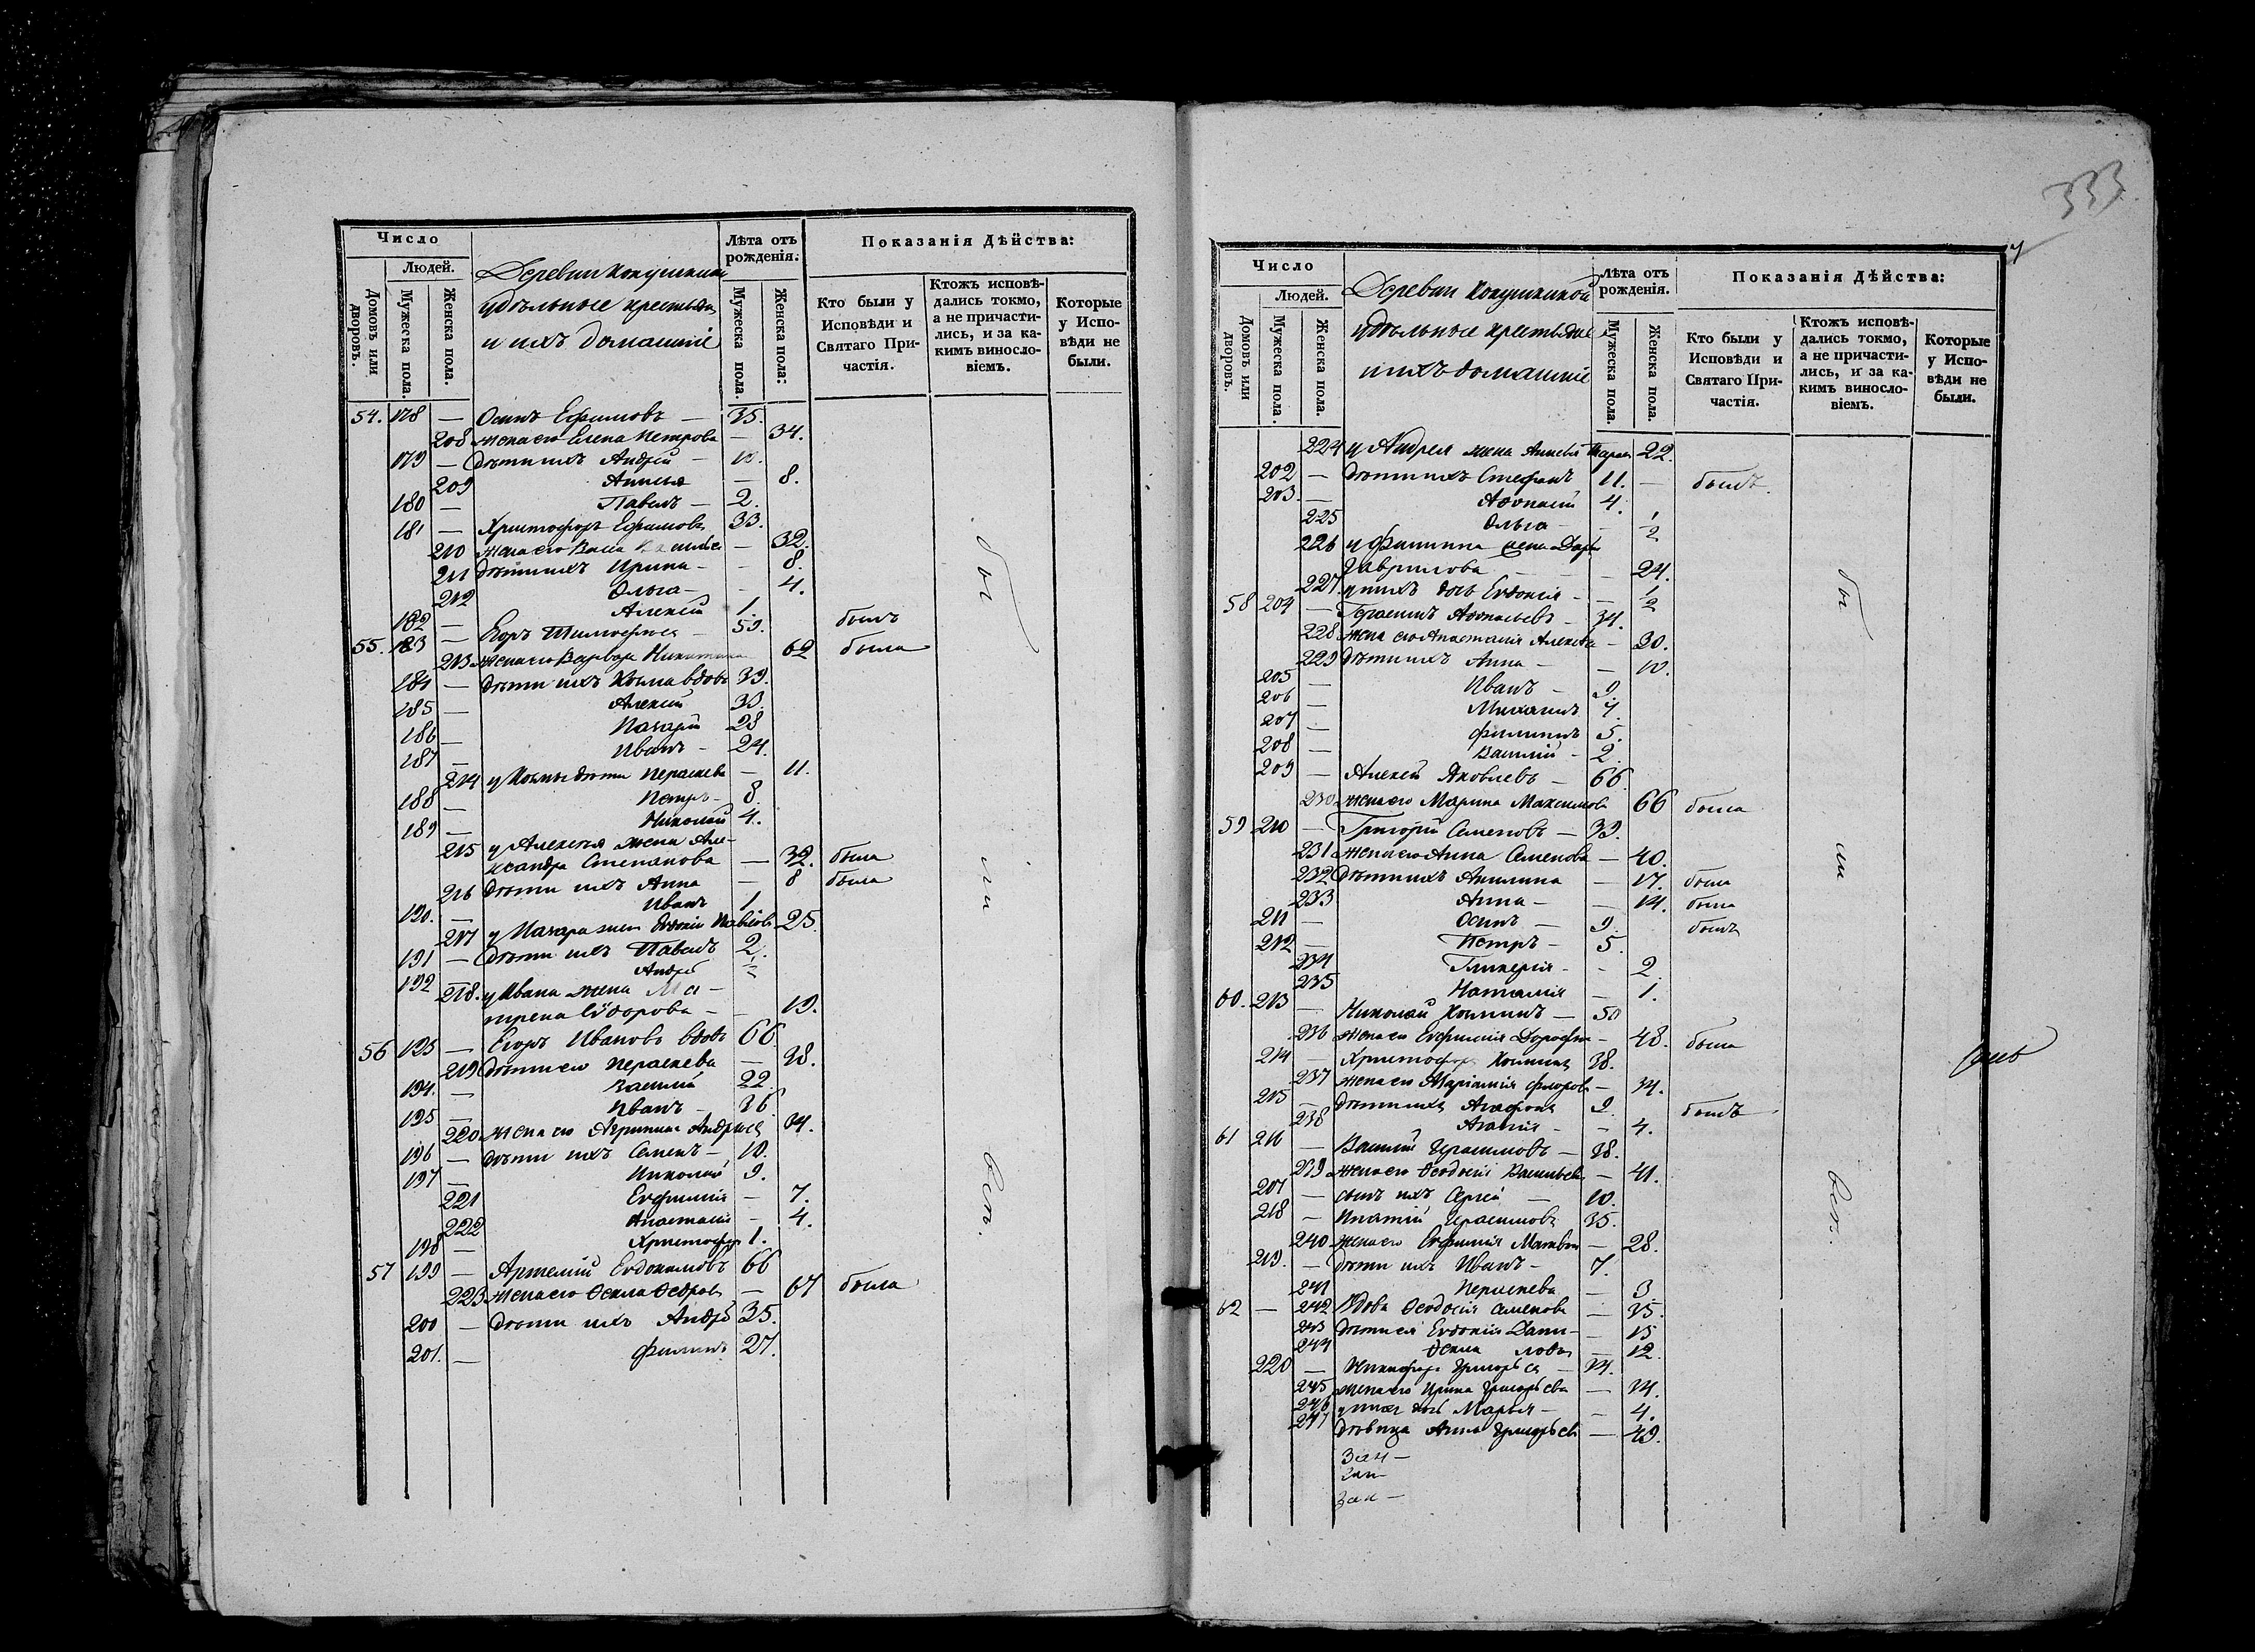 Число
Людей.
Домовъ или дворовъ.
Мужеска пола.
Женска пола.
Деревни Кокушкиной
удѣльные крестьяне
и ихъ домашніе
Лѣта отъ рожденія.
Мужеска пола.
Женска пола:
Показанія Дѣйства:
Кто были у Исповѣди и Святаго Причастія.
Ктожъ исповѣдались токмо, а не причастились, и за какимъ винословіемъ.
Которые у Исповѣди не были.
54. 178 — Осипъ Ефимовъ — 35.
208 жена его Елена Петрова — 34.
179 — дѣти ихъ Андрей — 10.
209 — 8.
180 — Павелъ — 2.
181 — Христофоръ Ефимовъ 33.
210 жена его Васса — 32.
211 дѣти ихъ Ирина — 8.
212 Ольга — 4.
182 — Алексій 1.
55. 183 — Егоръ Тимофѣевъ — 59. былъ
213 жена его Варвара Никитина 62 была
184 — дѣти ихъ Козма вдовъ 39.
185 — Алексій 33.
186 — Назарій 28
187 — Иванъ — 24.
214 у Козмы дѣти Параскева — 11.
188 — Петръ — 8.
189 — Николай 4.
215 у Алексѣя жена Але-
ксандра Степанова — 32. была
216 дѣти ихъ Анна — 8 была
190. — Иванъ 1.
217 у Назара жена Евдокія Павлова 25.
191 — дѣти ихъ Павелъ 2.
192 Андрей ½
218. у Ивана жена Ма-
трена Сидорова — 19.
56 193 — Егоръ Ивановъ вдовъ 66
219 дѣти его Параскева — 38.
194. — Василій 22.
195 — Иванъ — 36.
220 жена его Агрипина Андреева 34.
196 — дѣти ихъ Семенъ — 10.
197 — Николай 9.
221 Евфимія — 7.
222 Анастасія — 4.
198 — Христофоръ 1.
57 199 — Артемій Евдокимовъ 66
223 жена его Ѳекла Ѳедорова — 67 была
200 — дѣти ихъ Андрей 35.
201. — Филипъ 27.
бы
ли
всѣ.
333
Число
Людей.
Домовъ или дворовъ.
Мужеска пола.
Женска пола.
Деревни Кокушкиной
удѣльные крестьяне
и ихъ домашніе
Лѣта отъ рожденія.
Мужеска пола
Женска пола.
Показанія Дѣйства:
Кто были у Исповѣди и Святаго Причастія.
Ктожъ исповѣдались токмо, а не причастились, и за какимъ винословіемъ.
Которые у Исповѣди не были.
224 у Андрея жена 22.
202 — дѣти ихъ Стефанъ 11. — былъ
203 — Аѳонасій 4.
225 Ольга — — ½
226 у Филиппа жена Дарья
Гаврилова — 24.
227 у нихъ дочь Евдокія — — ½
58 204 — Герасимъ Аѳонасьевъ — 34.
228 жена его Анастасія Алексѣева — 30.
229 дѣти ихъ Анна — — 10.
205 — Иванъ — 9.
206 — Михаилъ 7.
207 — Филиппъ 5.
208 — Василій — 2.
209 — Алексій Яковлевъ — 66.
230 жена его Марина Максимова 66 была
59 210 — Григорій Семеновъ — 39.
231 жена его Анна Семенова — 40.
232 дѣти ихъ Акилина — 17. была
233 Анна — — 14. была
211 — Осипъ — 9. былъ
212 — Петръ — 5.
234 Гликерія — — 2.
235 Наталія — 1.
60. 213 — Николай Козминъ — 50
236 жена его Евфимія — 48. была
214 — Христофоръ Козминъ 38.
237 жена его Флорова — 34.
215 — дѣти ихъ 9. былъ
238 — 4.
61 216 — Василій Герасимовъ — 38.
239 жена его Ѳеодосія Васильева — 41.
217 — сынъ ихъ Сергій — 10.
218 — Ипатій Герасимовъ 35.
240 жена его Евфимія — 28.
219. — дѣти ихъ Иванъ — 7.
241 Параскева — 3.
62 — 242 Вдова Ѳеодосія Семенова — 35.
243 дѣти ея Евдокія — 15
244 Ѳекла — 12.
220 — Никифоръ Григорьевъ — 34.
245 жена его Ирина Григорьева — 34.
246 у нихъ дочь Марья — — 4.
247 дѣвица Анна Григорьева — 49.
бы
ли
всѣ.